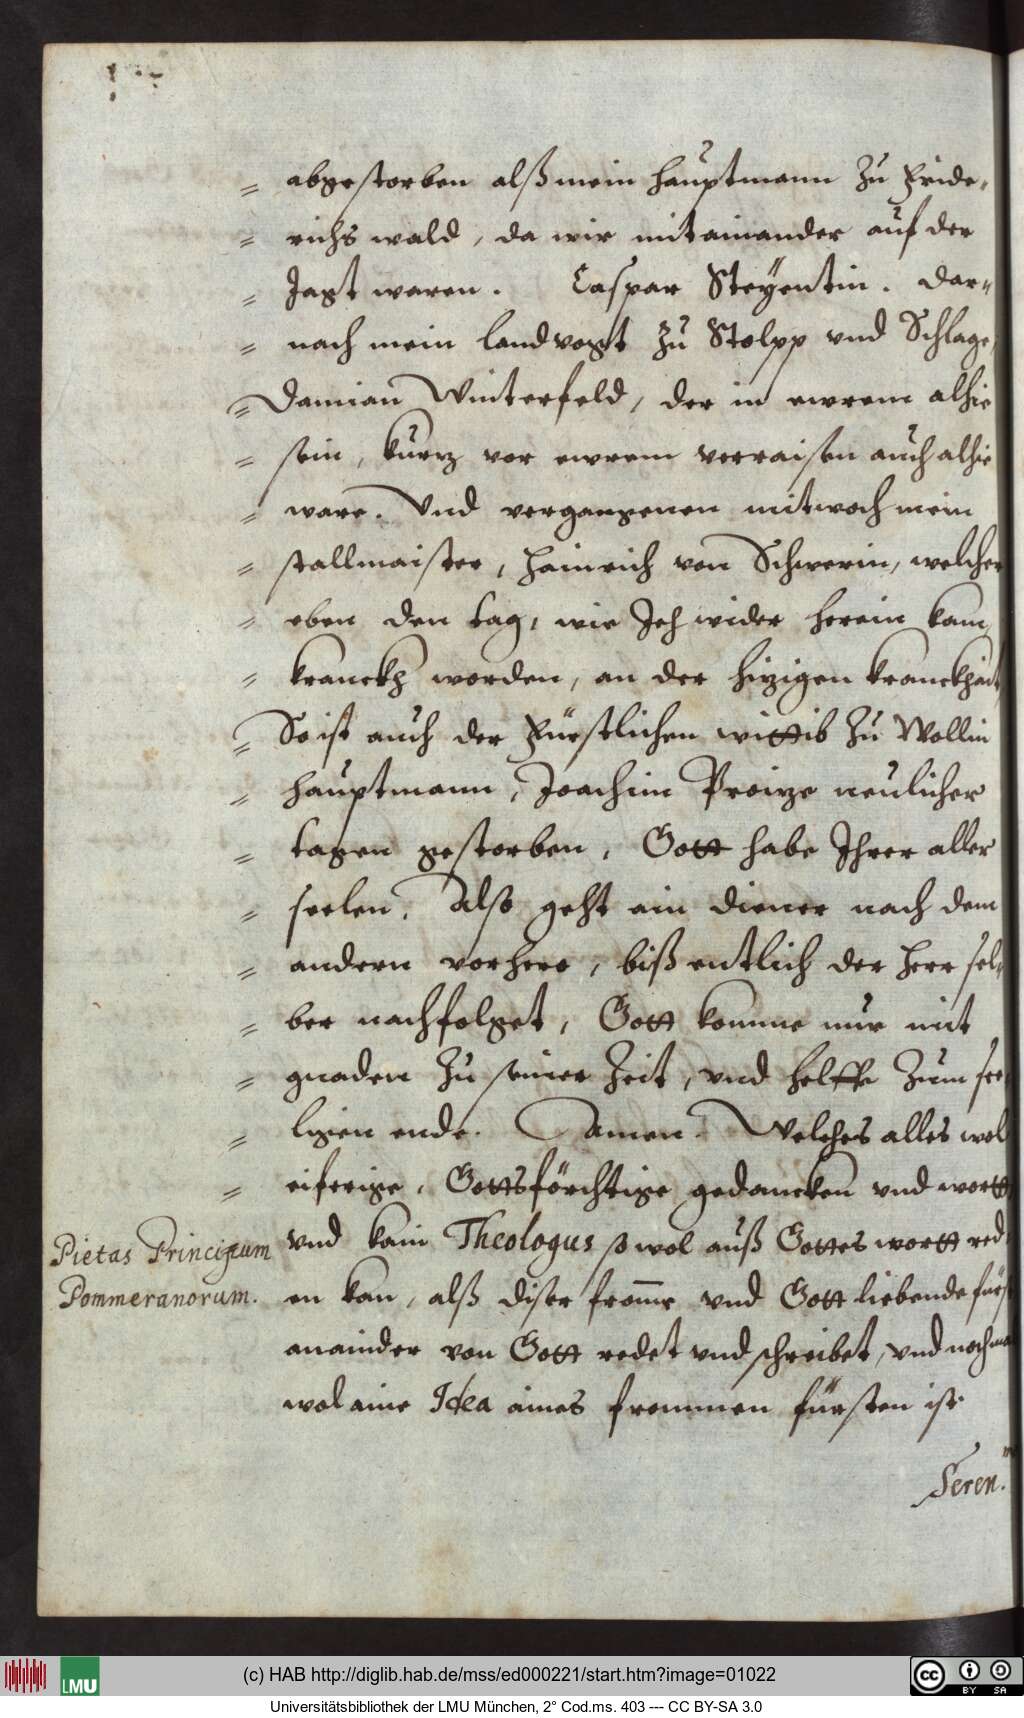 = abgestorben alß mein hauptmann Zu Fride-
= richs wald, da wir mitainander auf der
= Jagt waren. Caspar Steÿentin. dar-
= nach mein landvogt Zu Stolpp vnd Schlage,
= Damian Winterfeld, der in ewrem alhie
= sein, kurz vor ewrem verraisen auch alhie
= ware. Und vergangenen mitwoch mein
= stallmaister, Hainrich von Schwerin, welcher
= eben den tag, wie Jch wider herein kam,
= kranckh worden, an der hizigen kranckhait,
= So ist auch der Fürstlichen wittib Zu Wollin
= hauptmann, Joachim neulicher
= tagen gestorben, Gott habe Ihrer aller
= seelen. Also geht ain diener nach dem
= andern vorhero, biß entlich der herr sel-
= ber nachfolget, Gott komme nur mit
= gnaden Zu seiner Zeit, vnd helffe Zum see-
= ligen ende. Amen. Welches alles wol
= eiferige, Gottsförchtige gedancken vnd wortt,
Pietas Principum
Pommeranorum.
vnd kain Theologus so wol auß Gottes wortt red-
en kan, alß diser from̅e vnd Gott liebende fürst
anainder von Gott redet vnd schreibet, vnd
wol aine Idea aines frommen fürsten ist.
Seren.
(c) HAB http://diglib.hab.de/mss/ed000221/start.htm?image=01022
LMU
cc BY SA
Universitätsbibliothek der LMU München, 2° Cod.ms. 403 --- CC BY-SA 3.0